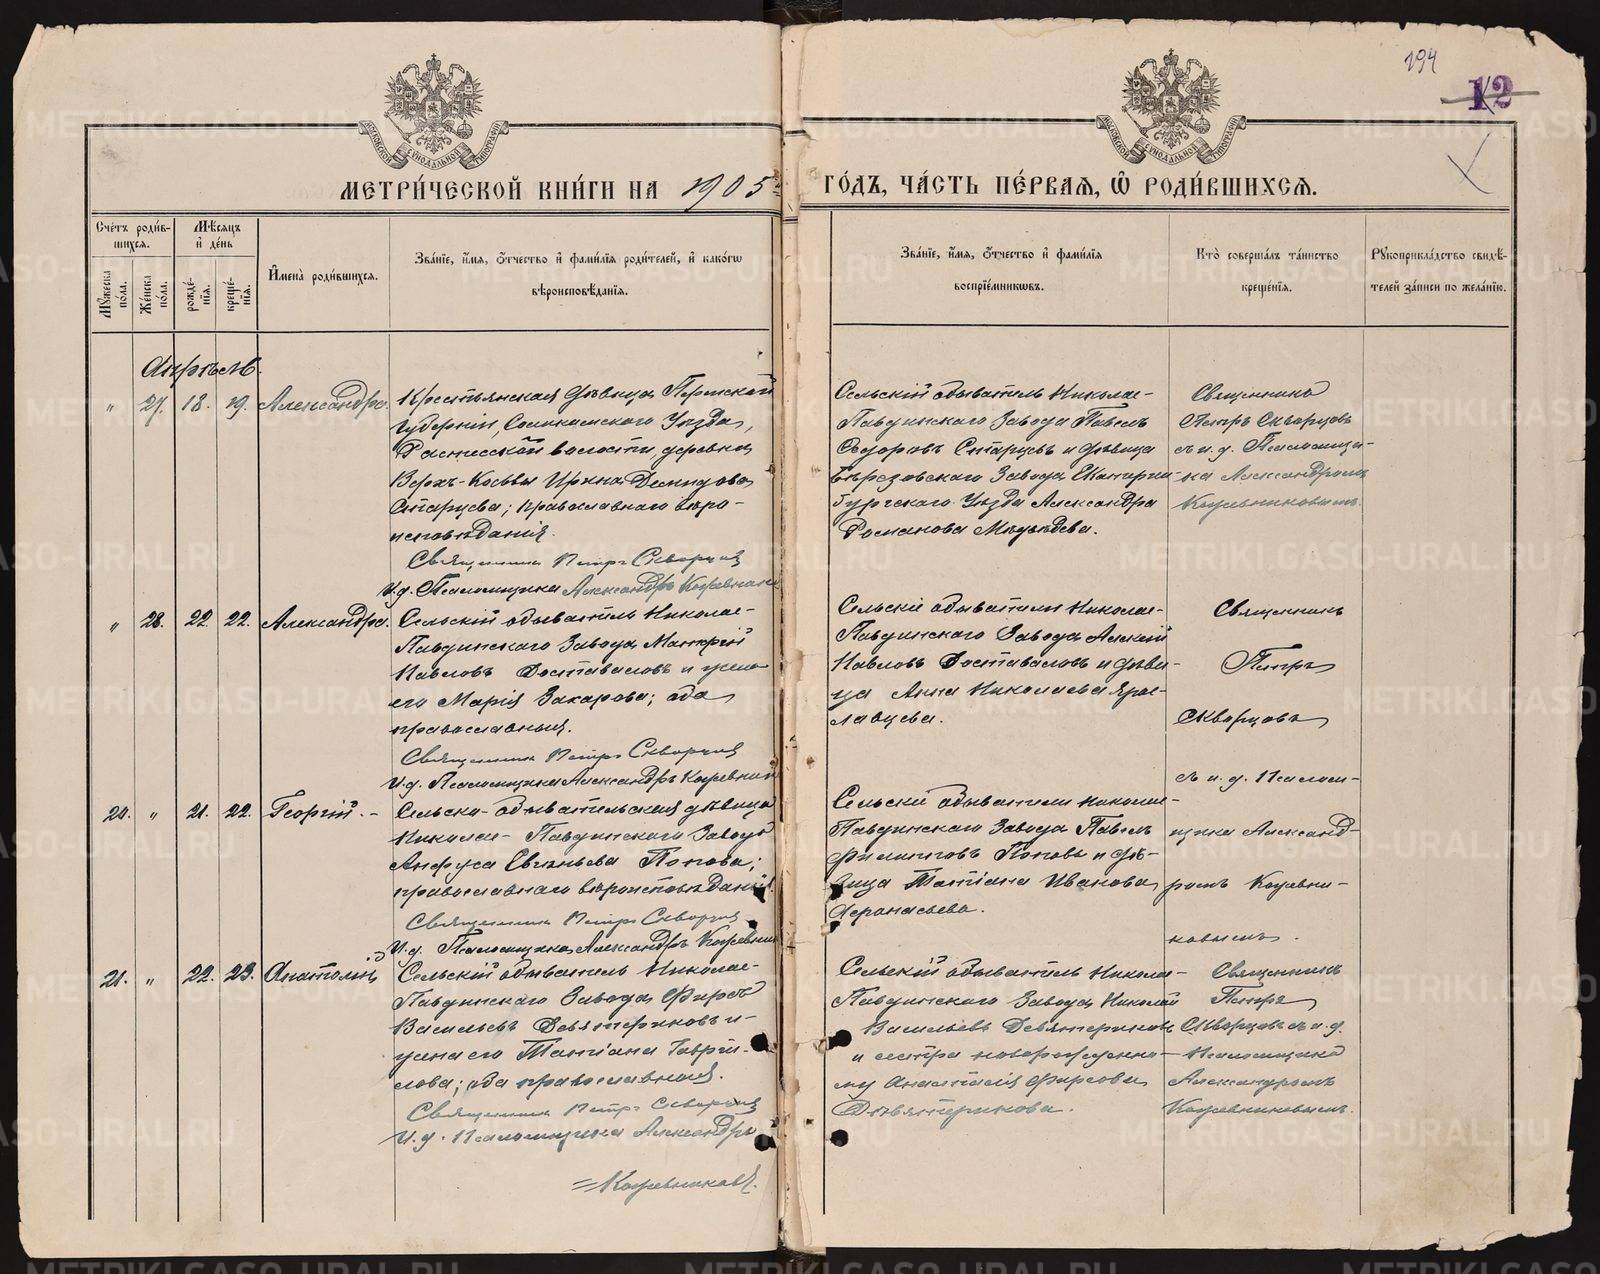 194
12
МОСКОВСКОЙ СѴНОДАЛЬНОЙ ТИПОГРАФІИ
МОСКОВСКОЙ СѴНОДАЛЬНОЙ ТИПОГРАФІИ
МЕТРИ́ЧЕСКОЙ КНИ́ГИ НА 1905
ГО́ДЪ, ЧА́СТЬ ПЕ́РВАѦ, Ѽ РОДИ́ВШИХСѦ.
Сче́тъ роди́в-
шихсѧ.
Мꙋ́жеска по́ла.
Же́нска по́ла.
Мѣ́сѧцъ
и҆ де́нь
рожде́-
нїѧ.
креще́-
нїѧ.
И҆мена̀ роди́вшихсѧ.
Зва́нїе, и҆́мѧ, ѻ҆́тчество и҆ фами́лїѧ роди́телей, и҆ како́гѡ
вѣроисповѣ́данїѧ.
Зва́нїе, и҆́мѧ, ѻ҆́тчество и҆ фами́лїѧ
воспрїе́мникѡвъ.
Кто̀ соверша́лъ та́инство
креще́нїѧ.
Рꙋкоприкла́дство свидѣ́-
телей за́писи по жела́нїю.
Апрѣль.
" 27. 18. 19. Александра.
Крестьянская дѣвица Пермской
губерніи, Соликамского Уѣзда,
Растесской волости, деревни
Верхъ-Косьвы Ирина Демидова
Старцева; православнаго вѣро-
исповѣданія.
Священникъ Петръ Скворцовъ
И.д. Псаломщика Александръ Кожевник
Сельскій обыватель Николае-
Павдинскаго Завода Павелъ
Ѳедоровъ Старцевъ и дѣвица
Березовскаго Завода Екатерин-
бургскаго Уѣзда Александра
Романова Медвѣдева.
Священникъ
Петръ Скворцовъ
съ и.д. Псаломщи-
ка Александромъ
Кожевниковымъ.
" 28. 22. 22. Александра.
Сельскій обыватель Николае-
Павдинскаго Завода
Павловъ Постоваловъ и жена
его Марія Захарова; оба
православныя.
Священникъ Петръ Скворцовъ
И.д. Псаломщика Александръ Кожевник
Сельскіе обыватели Николае-
Павдинскаго Завода Алексій
Павловъ Постоваловъ и дѣви-
ца Анна Николаева Яро-
славцева.
Священникъ
Петръ
Скворцовъ
съ и.д. Псалом-
щика Александ-
ромъ Кожевни-
ковымъ.
20. " 21. 22. Георгій.
Сельско-обывательская дѣвица
Николае-Павдинскаго Завода
Анфуса Евгеньева Попова;
православнаго вѣроисповѣданія.
Священникъ Петръ Скворцовъ
И.д. Псаломщика Александръ Кожевник
Сельскіе обыватели Николае-
Павдинскаго Завода Павелъ
Филипповъ Поповъ и дѣ-
вица Татіана Иванова
Аѳанасьева.
21. " 22. 23. Анатолій
Сельскій обыватель Николае-
Павдинскаго Завода Фирсъ
Васильевъ Девятериковъ и
жена его Татіана Гаврі-
лова; оба православныя.
Священникъ Петръ Скворцовъ
И.д. Псаломщика Александръ
Кожевниковъ.
Сельскій обыватель Николае-
Павдинскаго Завода Николай
Васильевъ Девятериковъ
и сестра новорожденно-
му Анастасія Фирсова
Девятерикова.
Священникъ
Петръ
Скворцовъ съ и.д.
Псаломщика
Александромъ
Кожевниковымъ.
METRIKI.GASO-URAL.RU